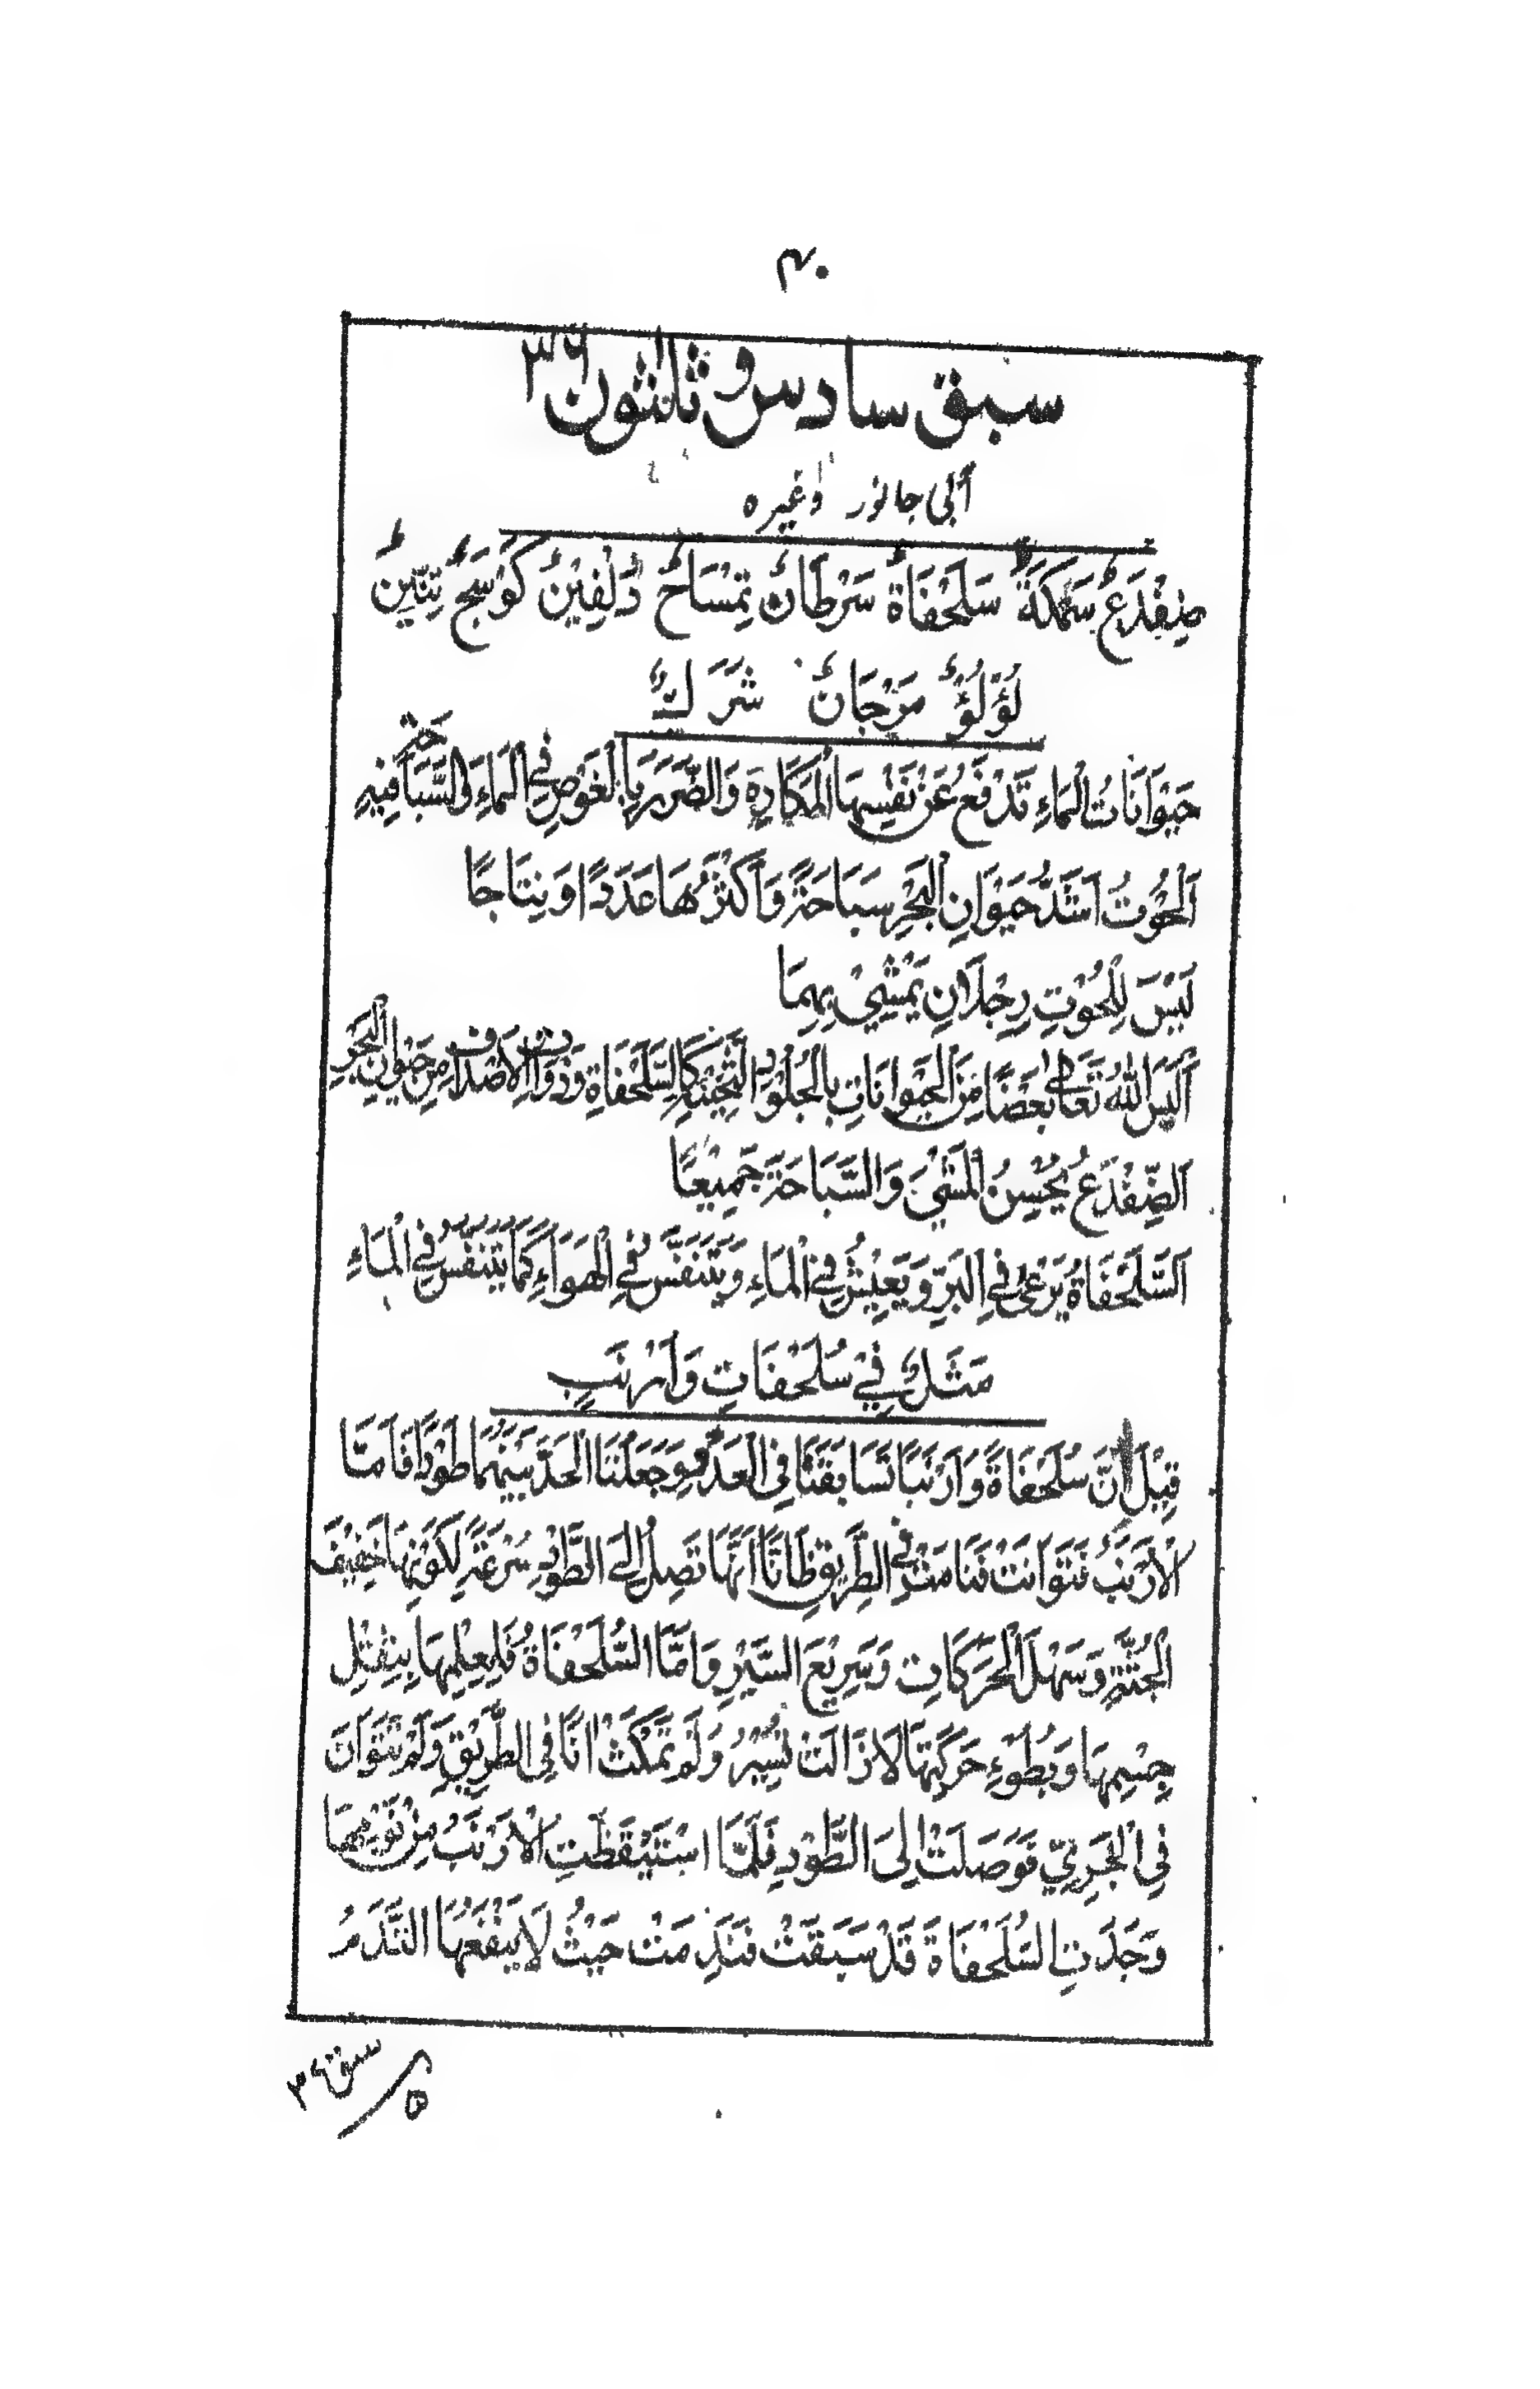 ۴۰
سبق سادس و ثلثون ۳۶
آبی جانور وغیرہ
ضِفْدَعٌ سَمَكَةٌ سَلَحْفَاةٌ سَرْطَانٌ تِمْسَاحٌ دُلْفِيْنٌ كَوْسَجٌ تِنِّيْنٌ
لُؤْلُؤٌ مَرْجَانٌ شَرَكٌ
حَيْوَانَاتُ الْمَاءِ تَدْفَعُ عَنْ نَفْسِهَا الْمَكَارِهَ وَالضَّرَرَ بِالْغَوْصِ فِي الْمَاءِ وَالسَّبَاحَةِ فِيْهِ
اَلْحُوْتُ اَشَدُّ حَيْوَانِ الْبَحْرِ سَبَاحَةً وَاَكْثَرُهَا عَدَدًا وَنِتَاجًا
لَيْسَ لِلْحُوْتِ رِجْلَانِ يَمْشِيْ بِهِمَا
اَلْبَسَ اللهُ تَعَالٰى بَعْضًا مِنَ الْحَيْوَانَاتِ بِالْجُلُوْدِ الثَّخِيْنَةِ كَالسَّلَحْفَاةِ وَذَوَاتِ الْاَصْدَافِ مِنْ حَيْوَانِ الْبَحْرِ
اَلضِّفْدَعُ يُحْسِنُ الْمَشْيَ وَالسَّبَاحَةَ جَمِيْعًا
اَلسَّلَحْفَاةُ يَرْعٰى فِي الْبَرِّ وَيَعِيْشُ فِي الْمَاءِ وَيَتَنَفَّسُ فِي الْهَوَاءِ كَمَا يَتَنَفَّسُ فِي الْمَاءِ
مَثَلٌ فِيْ سُلَحْفَاتٍ وَاَرْنَبٍ
قِيْلَ اِنَّ سُلَحْفَاةً وَاَرْنَبًا تَسَابَقَتَا فِي الْعَدْوِ وَجَعَلَتَا الْحَدَّ بَيْنَهُمَا طَوْدًا فَاَمَّا
الْاَرْنَبُ فَتَوَانَتْ فَنَامَتْ فِي الطَّرِيْقِ ظَانًّا اَنَّهَا تَصِلُ اِلَى الطَّوْدِ سُرْعَةً لِكَوْنِهَا خَفِيْفَ
الْجُثَّةِ وَسَهْلَ الْحَرَكَاتِ وَسَرِيْعَ السَّيْرِ وَاَمَّا السُّلَحْفَاةُ فَلِعِلْمِهَا بِثِقْلِ
جِسْمِهَا وَبُطُوْءِ حَرَكَتِهَا لَا زَالَتْ تَسِيْرُ وَلَمْ تَمْكُثْ اٰنًا فِي الطَّرِيْقِ وَلَمْ تَتَوَانَ
فِي الْجَرِيِّ فَوَصَلَتْ اِلَى الطَّوْدِ فَلَمَّا اسْتَيْقَظَتِ الْاَرْنَبُ مِنْ نَوْمِهَا
وَجَدَتِ السُّلَحْفَاةَ قَدْ سَبَقَتْ فَنَدِمَتْ حَيْثُ لَا يَنْفَعُهَا النَّدَمُ
سبق ۳۶